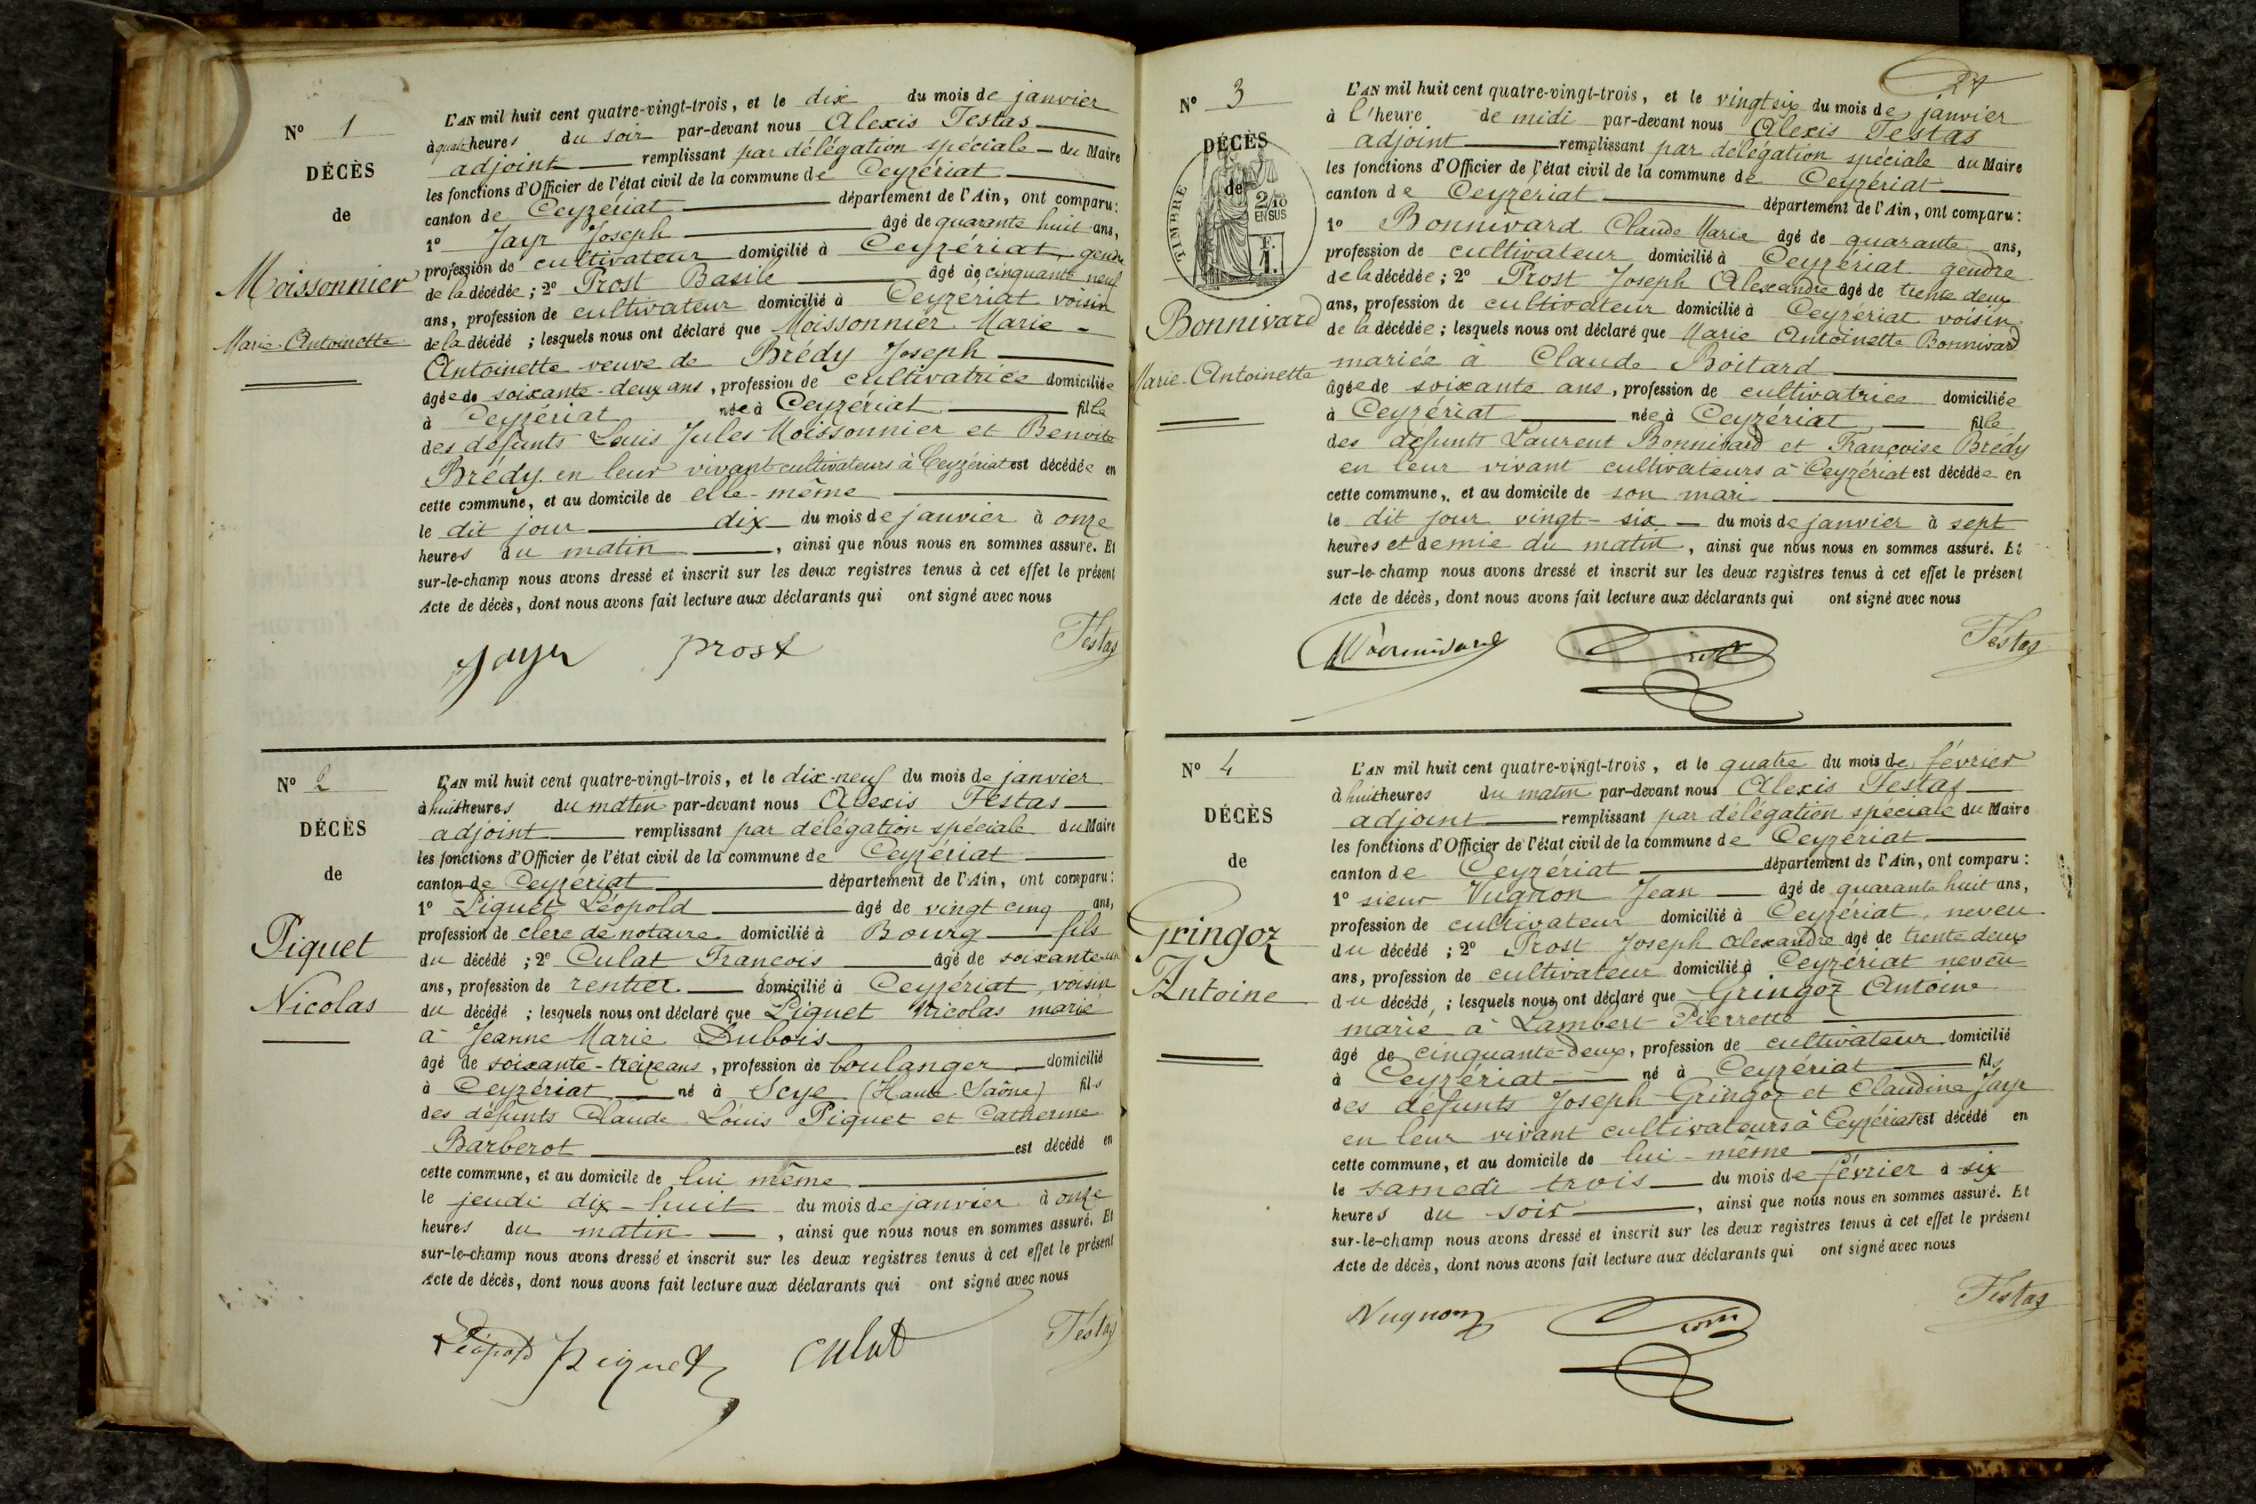 N° 1
DÉCÈS
de
Moissonnier
Marie-Antoinette
L'AN mil huit cent quatre-vingt-trois, et le dix du mois de janvier
à quatre heures du soir par-devant nous Alexis Testas
adjoint remplissant par délégation spéciale du Maire
les fonctions d'Officier de l'état civil de la commune de Ceyzériat
canton de Ceyzériat département de l'Ain, ont comparu :
1° Jayr Joseph âgé de quarante huit ans,
profession de cultivateur domicilié à Ceyzériat, gendre
de la décédée ; 2° Prost Basile âgé de cinquante neuf
ans, profession de cultivateur domicilié à Ceyzériat voisin
de la décédé ; lesquels nous ont déclaré que Moissonnier Marie-
Antoinette veuve de Brédy Joseph
âgée de soixante-deux ans, profession de cultivatrice domiciliée
à Ceyzériat née à Ceyzériat fille
des défunts Louis Jules Moissonnier et Benoite
Brédy en leur vivant cultivateurs à Ceyzériat est décédée en
cette commune, et au domicile de elle-même
le dit jour dix du mois de janvier à onze
heures du matin, ainsi que nous nous en sommes assuré. Et
sur-le-champ nous avons dressé et inscrit sur les deux registres tenus à cet effet le présent
Acte de décès, dont nous avons fait lecture aux déclarants qui ont signé avec nous
Jayr prost Testas
N° 2
DÉCÈS
de
Piquet
Nicolas
L'AN mil huit cent quatre-vingt-trois, et le dix-neuf du mois de janvier
à huit heures du matin par-devant nous Alexis Testas
adjoint remplissant par délégation spéciale du Maire
les fonctions d'Officier de l'état civil de la commune de Ceyzériat
canton de Ceyzériat département de l'Ain, ont comparu :
1° Piquet Léopold âgé de vingt cinq ans,
profession de clerc de notaire domicilié à Bourg fils
du décédé ; 2° Culat François âgé de soixante-un
ans, profession de rentier domicilié à Ceyzériat, voisin
du décédé ; lesquels nous ont déclaré que Piquet Nicolas marié
à Jeanne Marie Dubois
âgé de soixante-treize ans, profession de boulanger domicilié
à Ceyzériat né à Scye (Haute Saône) fils
des défunts Claude Louis Piquet et Catherine
Barberot est décédé en
cette commune, et au domicile de lui même
le jeudi dix-huit du mois de janvier à onze
heures du matin, ainsi que nous nous en sommes assuré. Et
sur-le-champ nous avons dressé et inscrit sur les deux registres tenus à cet effet le présent
Acte de décès, dont nous avons fait lecture aux déclarants qui ont signé avec nous
Léopold Piquet Culat Testas
N° 3
DÉCÈS
de
TIMBRE
2/10
EN SUS
Bonnivard
Marie-Antoinette
L'AN mil huit cent quatre-vingt-trois, et le vingt six du mois de janvier
à l'heure de midi par-devant nous Alexis Testas
adjoint remplissant par délégation spéciale du Maire
les fonctions d'Officier de l'état civil de la commune de Ceyzériat
canton de Ceyzériat département de l'Ain, ont comparu :
1° Bonnivard Claude Marie âgé de quarante ans,
profession de cultivateur domicilié à Ceyzériat gendre
de la décédée ; 2° Prost Joseph Alexandre âgé de trente deux
ans, profession de cultivateur domicilié à Ceyzériat voisin
de la décédée ; lesquels nous ont déclaré que Marie Antoinette Bonnivard
mariée à Claude Boitard
âgée de soixante ans, profession de cultivatrice domiciliée
à Ceyzériat née à Ceyzériat fille
des défunts Laurent Bonnivard et Françoise Brédy
en leur vivant cultivateurs à Ceyzériat est décédée en
cette commune, et au domicile de son mari
le dit jour vingt-six du mois de janvier à sept
heures et demie du matin, ainsi que nous nous en sommes assuré. Et
sur-le-champ nous avons dressé et inscrit sur les deux registres tenus à cet effet le présent
Acte de décès, dont nous avons fait lecture aux déclarants qui ont signé avec nous
Bonnivard Prost Testas
N° 4
DÉCÈS
de
Gringoz
Antoine
L'AN mil huit cent quatre-vingt-trois, et le quatre du mois de février
à huit heures du matin par-devant nous Alexis Testas
adjoint remplissant par délégation spéciale du Maire
les fonctions d'Officier de l'état civil de la commune de Ceyzériat
canton de Ceyzériat département de l'Ain, ont comparu :
1° sieur Vugnon Jean âgé de quarante huit ans,
profession de cultivateur domicilié à Ceyzériat, neveu
du décédé ; 2° Prost Joseph Alexandre âgé de trente deux
ans, profession de cultivateur domicilié à Ceyzériat neveu
du décédé ; lesquels nous ont déclaré que Gringoz Antoine
marié à Lambert Pierrette
âgé de cinquante-deux, profession de cultivateur domicilié
à Ceyzériat né à Ceyzériat fils
des défunts Joseph Gringoz et Claudine Jayr
en leur vivant cultivateurs à Ceyzériat est décédé en
cette commune, et au domicile de lui-même
le samedi trois du mois de février à six
heures du soir, ainsi que nous nous en sommes assuré. Et
sur-le-champ nous avons dressé et inscrit sur les deux registres tenus à cet effet le présent
Acte de décès, dont nous avons fait lecture aux déclarants qui ont signé avec nous
Vugnon Testas